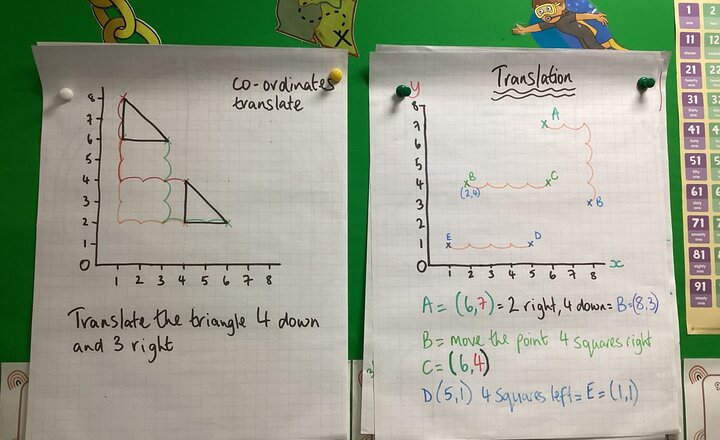 co-ordinates
translate
8
7
6
5
4
3
2
1
0
1 2 3 4 5 6 7 8
Translate the triangle 4 down
and 3 right
Translation
y
8
7
6
5
4
3
2
1
0
1 2 3 4 5 6 7 8 x
A
B
(2,4)
C
B
E
D
A = (6,7) = 2 right, 4 down = B = (8,3)
B = move the point 4 squares right
C = (6,4)
D (5,1) 4 squares left = E = (1,1)
1
11
21
31
41
51
61
71
81
91